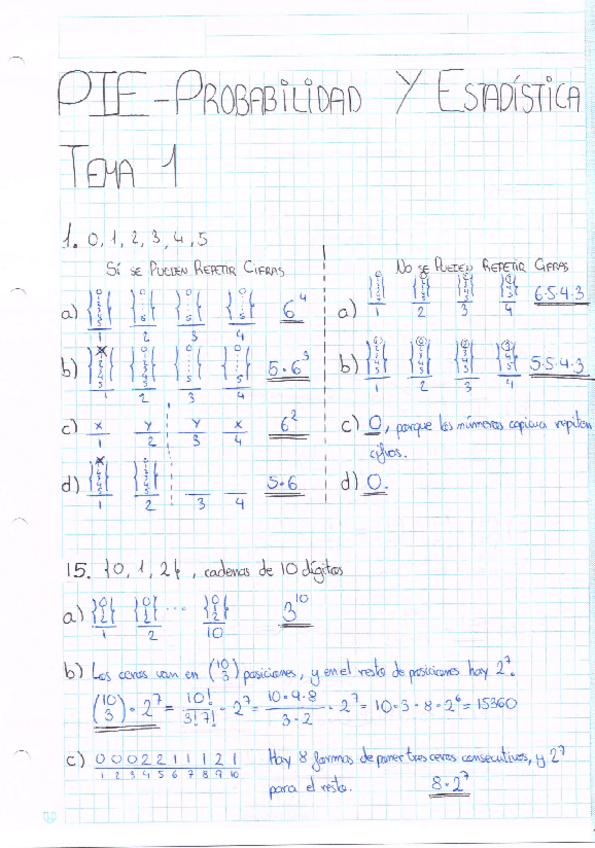 PIE - PROBABILIDAD Y ESTADÍSTICA
TEMA 1
1. 0, 1, 2, 3, 4, 5
SÍ SE PUEDEN REPETIR CIFRAS
a) 6^4
1 2 3 4
b) 5·6^3
1 2 3 4
c) x y y x 6^2
1 2 3 4
d) 5·6
1 2 3 4
NO SE PUEDEN REPETIR CIFRAS
a) 6·5·4·3
1 2 3 4
b) 5·5·4·3
1 2 3 4
c) 0, porque los números capicua repiten
cifras.
d) 0.
15. {0, 1, 2}, cadenas de 10 dígitos
a) {0 1 2} {0 1 2} ... {0 1 2} 3^10
1 2 10
b) Los ceros van en (10 3) posiciones, y en el resto de posiciones hay 2^7.
(10 3)·2^7 = 10!/3!7! · 2^7 = 10·9·8/3·2 · 2^7 = 10·3·8·2^6 = 15360
c) 0 0 0 2 2 1 1 1 2 1 Hay 8 formas de poner tres ceros consecutivos, y 2^7
1 2 3 4 5 6 7 8 9 10
para el resto. 8·2^7